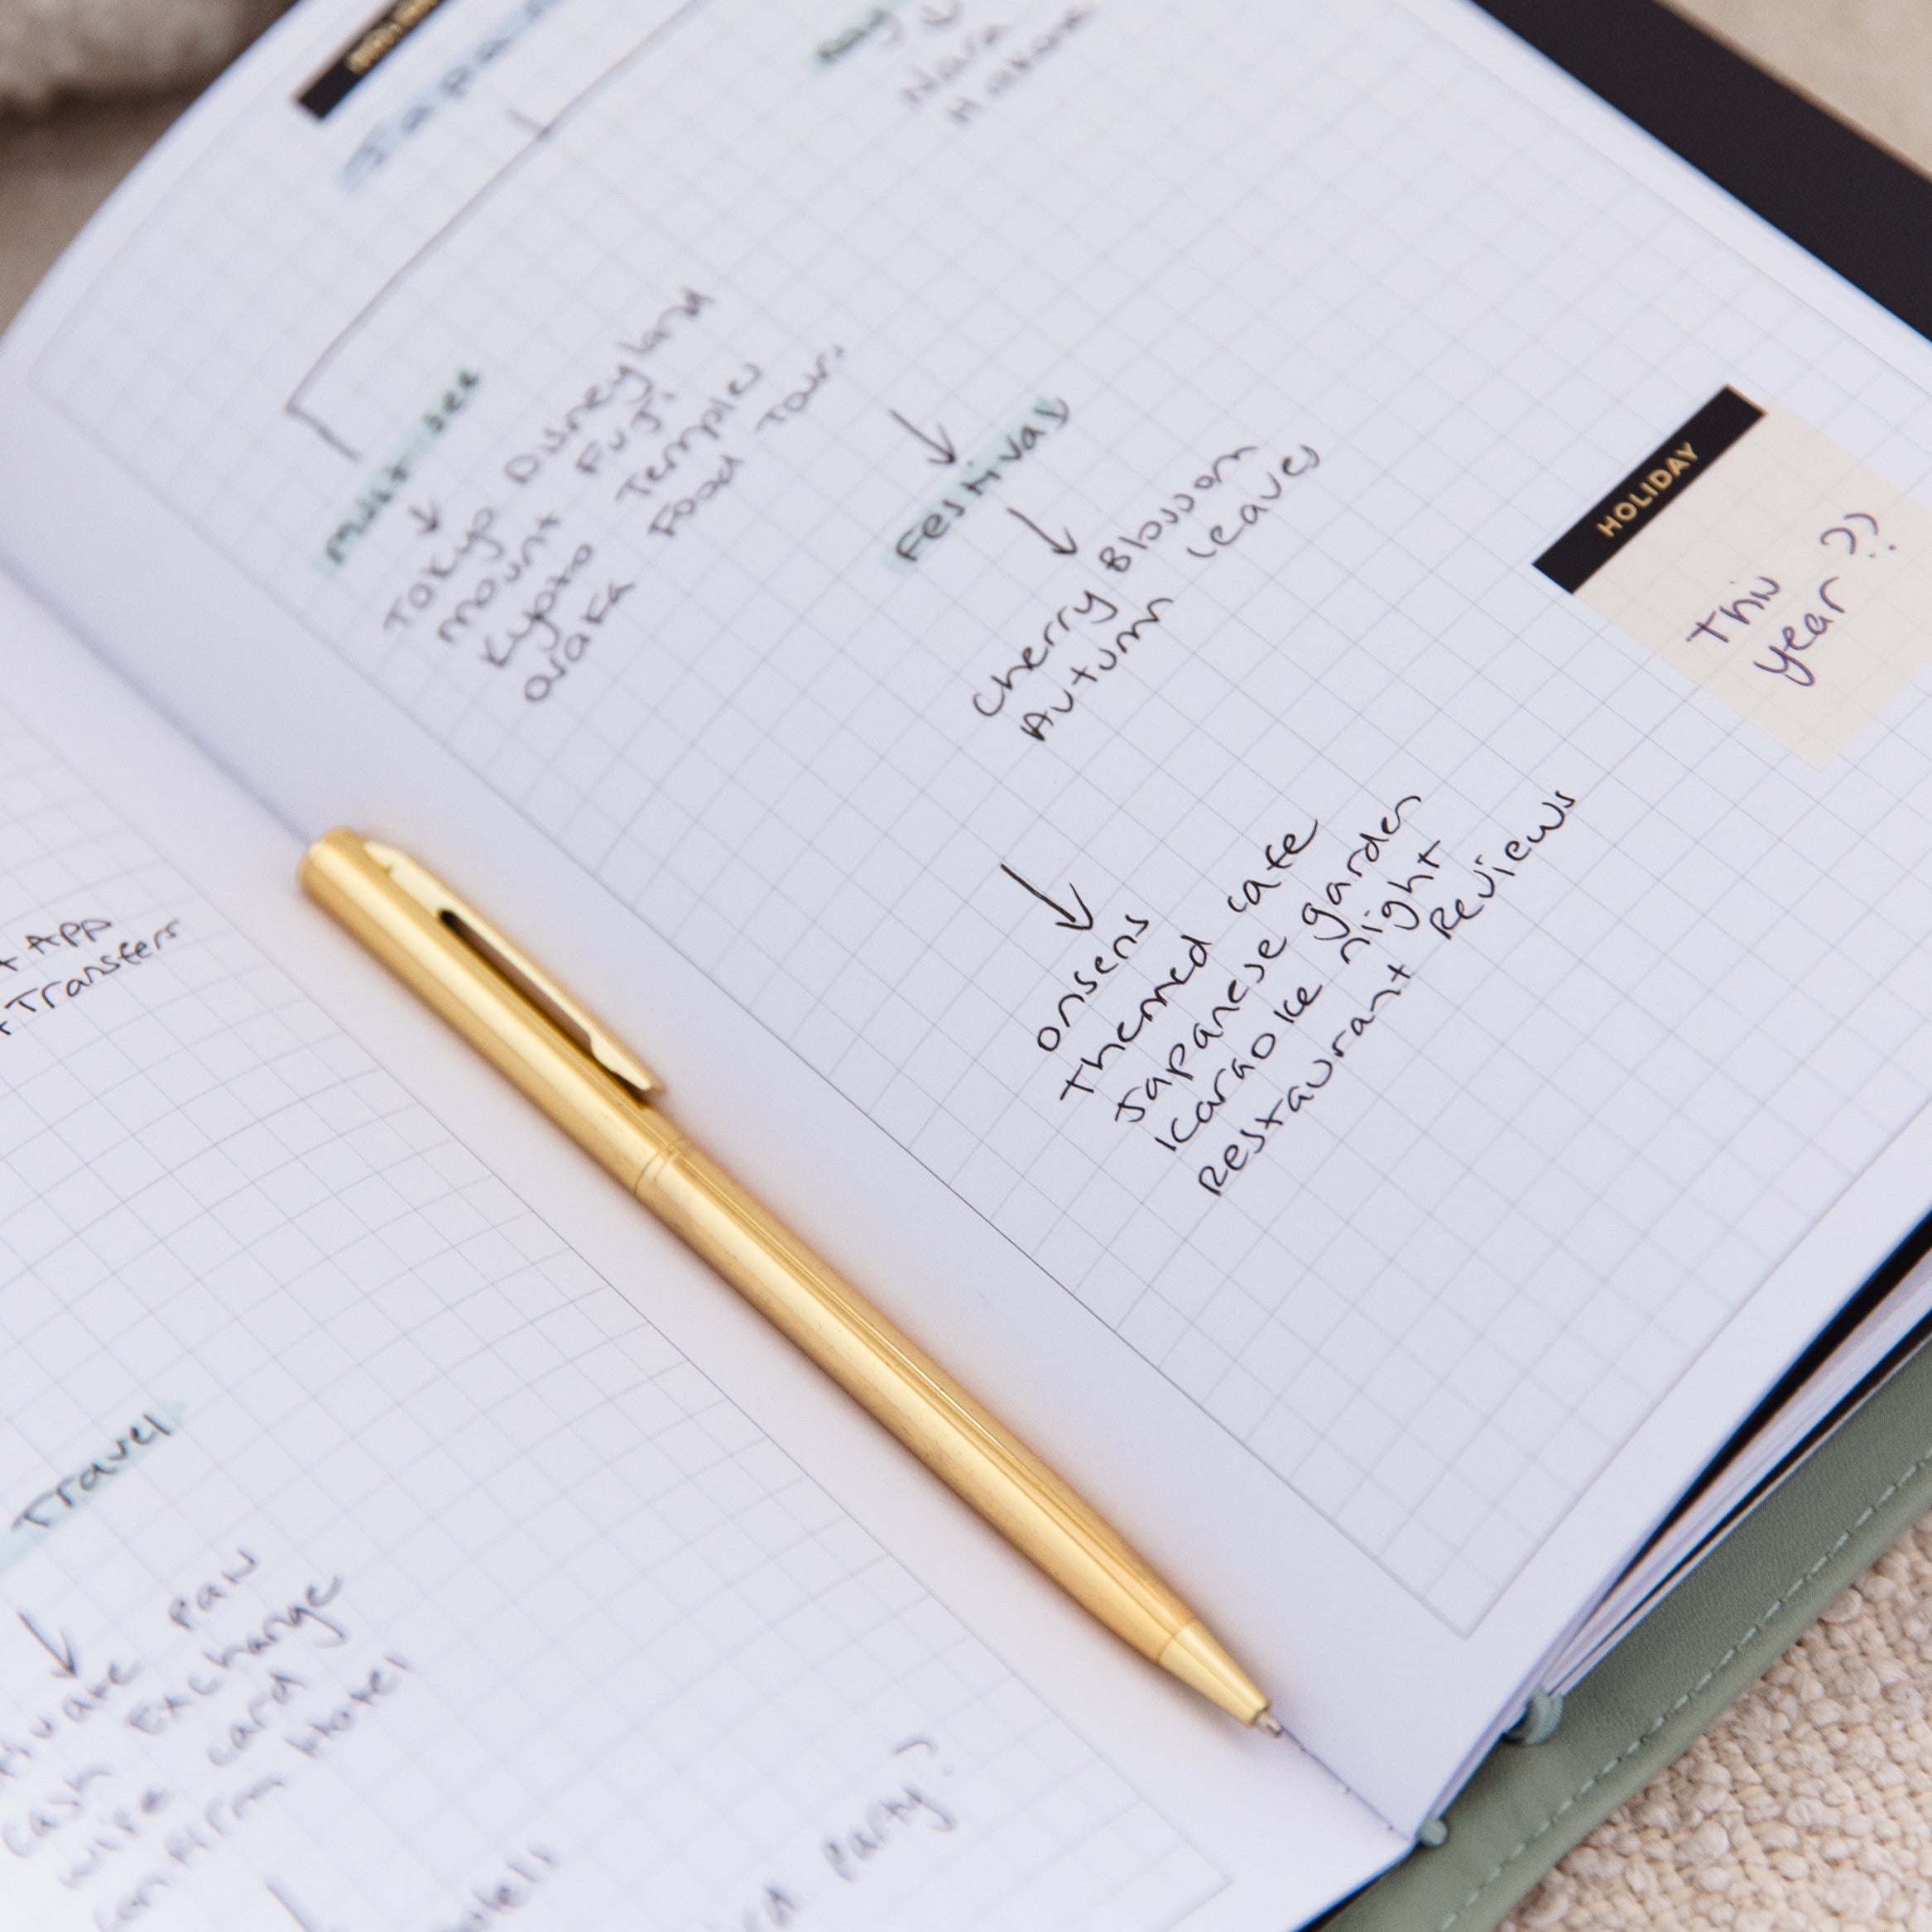 Japan
Nara
must see
Tokyo Disneyland
mount Fuji
Kyoto Temples
Osaka Food Tour
Festivals
Cherry Blossom
Autumn leaves
HOLIDAY
This
year??
onsens
Themed cafe
Japanese garden
Karaoke night
Restaurant Reviews
App
Transfers
Travel
Pass
cash Exchange
wise card
confirm Hotel
party?